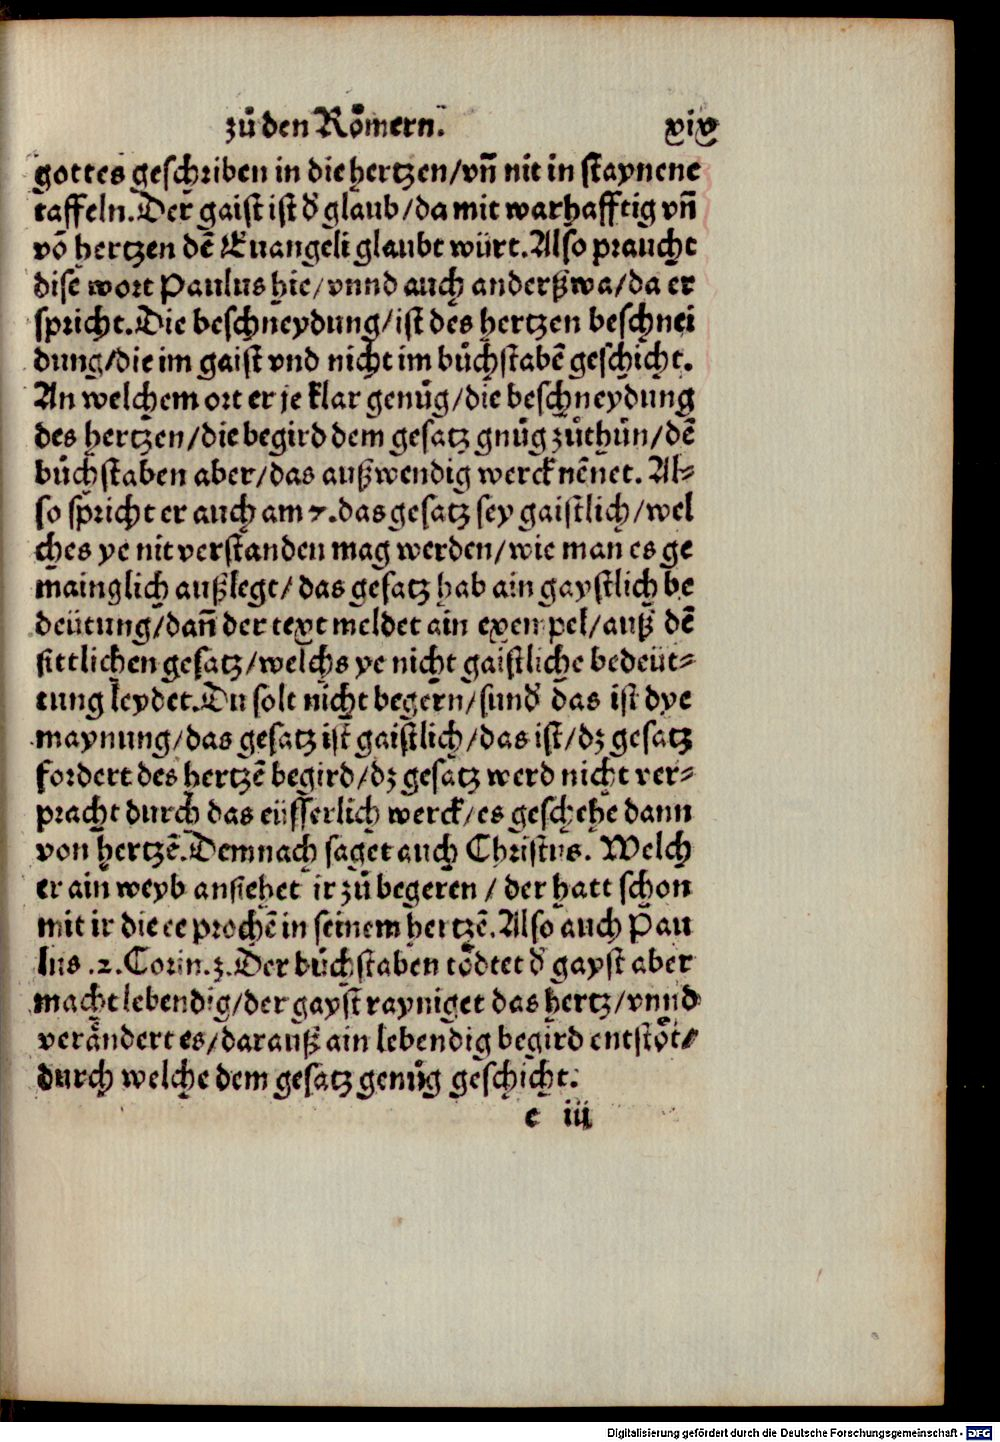 zů den Roͤmern. xix
gottes geschriben in die hertzen/vn̄ nit in staynene
taffeln. Der gaist ist d̓ glaub/da mit warhafftig vn̄
vō hertzen dē Euangeli glaubt würt. Also praucht
dise wort Paulus hie/vnnd auch anderßwa/da er
spricht. Die beschneydung/ist des hertzen beschnei
dung/die im gaist vnd nicht im bůchstabē geschicht.
An welchem ort er je klar genůg/die beschneydung
des hertzen/die begird dem gesatz gnůg zůthůn/dē
bůchstaben aber/das außwendig werck nēnet. Al⸗
so spricht er auch am 7. das gesatz sey gaistlich/wel
ches ye nit verstanden mag werden/wie man es ge
mainglich außlegt/das gesatz hab ain gaystlich be
deütung/dan̄ der text meldet ain exempel/auß dē
sittlichen gesatz/welchs ye nicht gaistliche bedeüt⸗
tung leydet. Du solt nicht begern/sund̓ das ist dye
maynung/das gesatz ist gaistlich/das ist/dz gesatz
fordert des hertzē begird/dz gesatz werd nicht ver⸗
pracht durch das eüsserlich werck/es geschehe dann
von hertzē. Demnach saget auch Christus. Welch
er ain weyb ansiehet ir zů begeren/der hatt schon
mit ir die ee prochē in seinem hertzē. Also auch Pau
lus .2. Corin. 3. Der bůchstaben toͤdtet d̓ gayst aber
macht lebendig/der gayst rayniget das hertz/vnnd
veraͤndert es/darauß ain lebendig begird entstoͤt/
durch welche dem gesatz genůg geschicht.
c iij
Digitalisierung gefördert durch die Deutsche Forschungsgemeinschaft - DFG